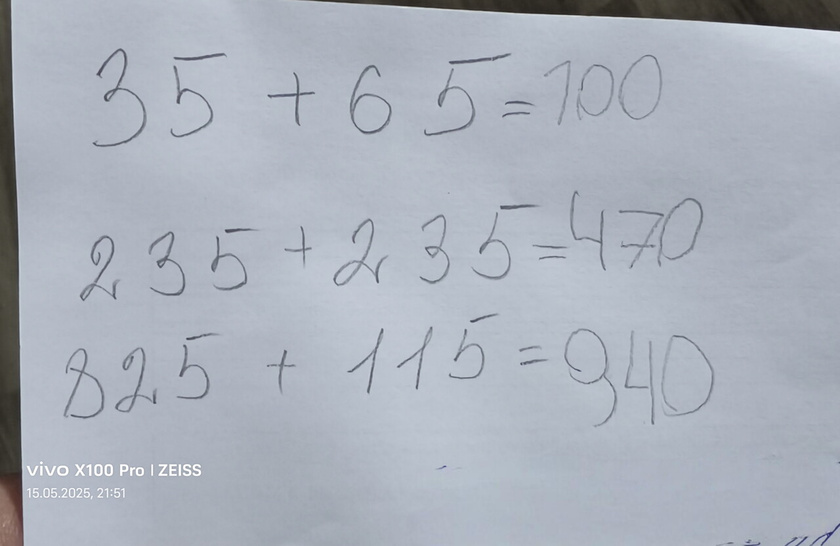 35 + 65 = 100
235 + 235 = 470
825 + 115 = 940
vivo X100 Pro | ZEISS
15.05.2025, 21:51